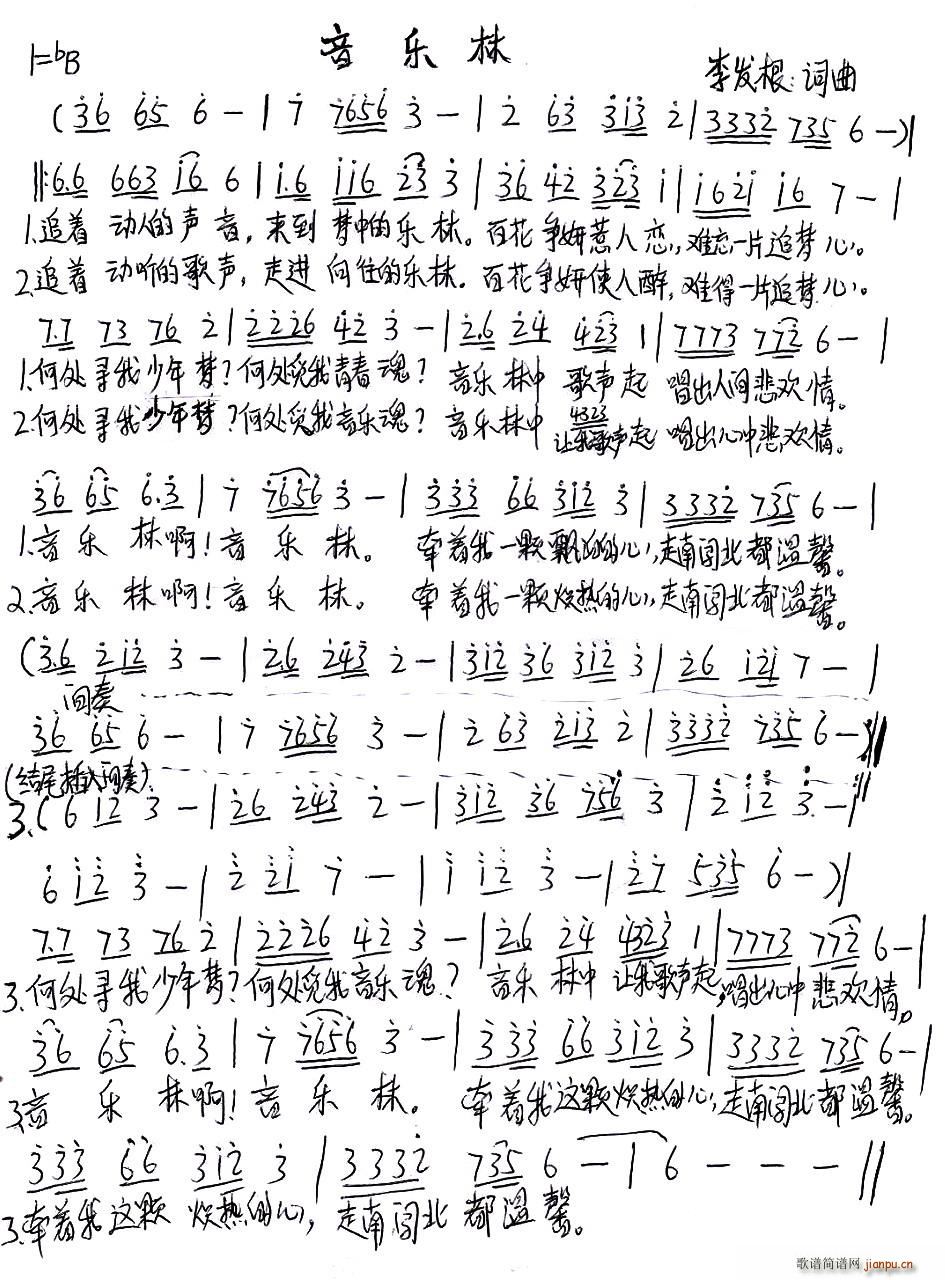 音乐林
1=ᵇB
李发根:词曲
(36 65 6 - | 7 7656 3 - | 2 63 313 2 | 3332 735 6 -)|
‖:6.6 663 i6 6 | i.6 ii6 23 3 | 36 42 323 i | i62i i6 7 - |
1.追着 动人的声音,来到 梦中的乐林。百花争妍惹人恋,难忘一片追梦心。
2.追着 动听的歌声,走进 向往的乐林。百花争妍使人醉,难得一片追梦心。
7.7 73 76 2 | 2226 42 3 - | 2.6 24 423 1 | 7773 772 6 - |
1.何处寻我少年梦?何处觅我青春魂? 音乐林中 歌声起 唱出人间悲欢情。
4323
2.何处寻我少年梦?何处觅我音乐魂? 音乐林中 让我歌声起 唱出心中悲欢情。
36 65 6.3 | 7 7656 3 - | 333 66 312 3 | 3332 735 6 - |
1.音乐林啊!音乐林。 牵着我一颗飘的心,走南闯北都温馨。
2.音乐林啊!音乐林。 牵着我一颗炽热的心,走南闯北都温馨。
(3.6 212 3 - | 2.6 243 2 - | 312 36 312 3 | 26 121 7 - |
间奏
36 65 6 - | 7 7656 3 - | 2 63 213 2 | 3332 735 6 -:‖
(结尾插入间奏)
3.(6 12 3 - | 26 243 2 - | 312 36 756 3 | 2 12 3. - ‖
6 12 3 - | 2 21 7 - | 1 12 3 - | 27 535 6 -)|
7.7 73 76 2 | 2226 42 3 - | 2.6 24 4323 1 | 7773 772 6 - |
3.何处寻我少年梦?何处觅我音乐魂? 音乐林中 让我歌声起,唱出心中悲欢情。
36 65 6.3 | 7 7656 3 - | 333 66 312 3 | 3332 735 6 - |
3.音乐林啊!音乐林。 牵着我这颗炽热的心,走南闯北都温馨。
333 66 312 3 | 3332 735 6 - | 6 - - - ‖
3.牵着我这颗 炽热的心,走南闯北 都温馨。
歌谱简谱网
jianpu.cn